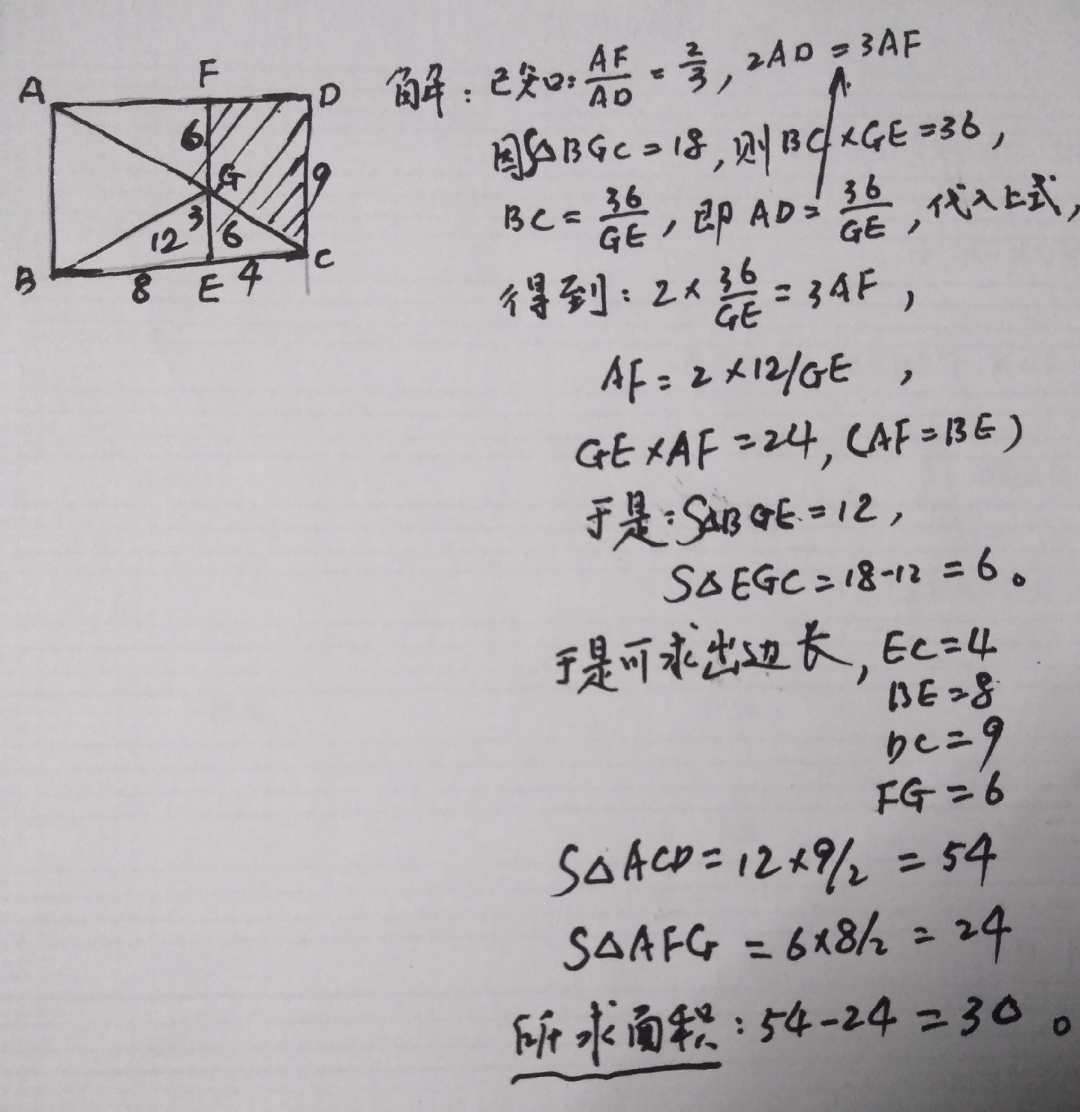 A F D
6
G
9
12 3 6
B 8 E 4 C
解：已知：AF/AD = 2/3，2AD = 3AF
因S△BGC = 18，则BC×GE = 36，
BC = 36/GE，即AD = 36/GE，代入上式，
得到：2×36/GE = 3AF，
AF = 2×12/GE，
GE×AF = 24，(AF = BE)
于是：S△BGE = 12，
S△EGC = 18-12 = 6。
于是可求出边长，EC = 4
BE = 8
DC = 9
FG = 6
S△ACD = 12×9/2 = 54
S△AFG = 6×8/2 = 24
所求面积：54-24 = 30。